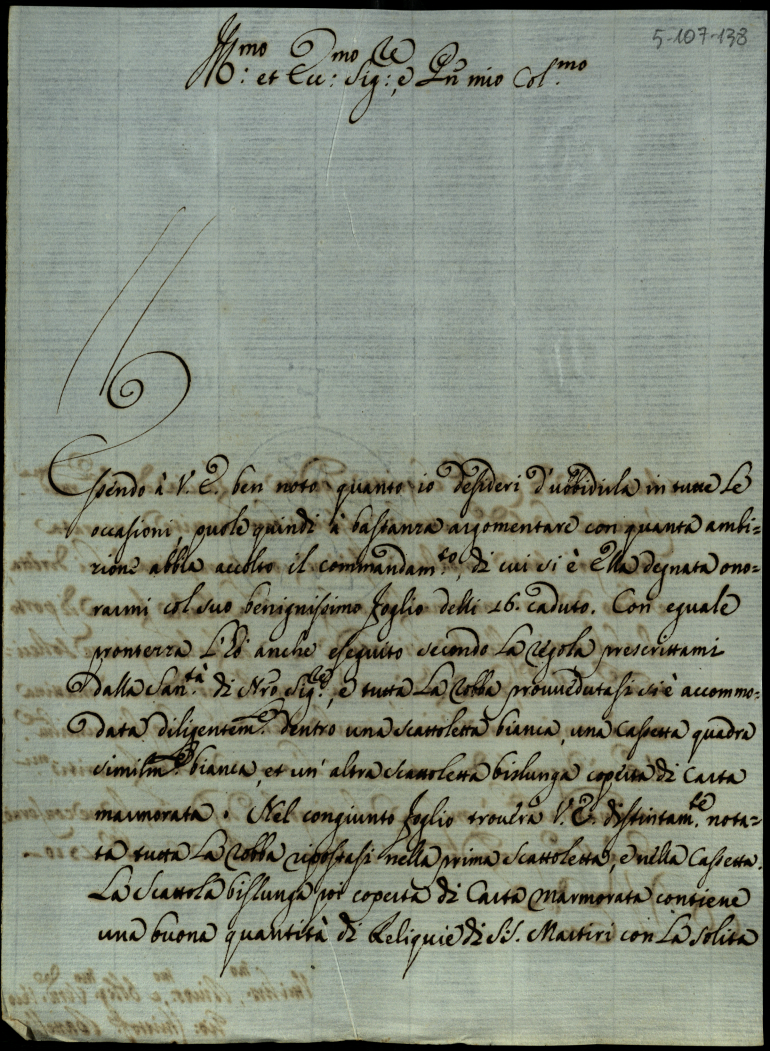 5-107-138
Ill:mo et Ecc:mo Sig:re, e Prn mio Col:mo
Essendo à V. E. ben noto quanto io desideri d'ubbidirla in tutte le
occasioni, puole quindi à bastanza argomentare con quanta ambi=
zione abbia accolto il commandam:to, di cui si è Ella degnata ono=
rarmi col suo benignissimo foglio delli 26. caduto. Con eguale
prontezza l'hò anche eseguito secondo la regola prescrittami
dalla San:tà di Nro Sig:re, e tutta la robba provvedutasi si è accommo=
data diligentem:e dentro una scattoletta bianca, una Cassetta quadra
similm:e bianca, et un' altra scattoletta bislunga coperta di Carta
marmorata. Nel congiunto foglio trovera V. E. distintam:te nota=
ta tutta la robba ripostasi nella prima scattoletta, e nella Cassetta.
La Scattola bislunga poi coperta di Carta marmorata contiene
una buona quantità di Reliquie di S.S. Martiri con la solita